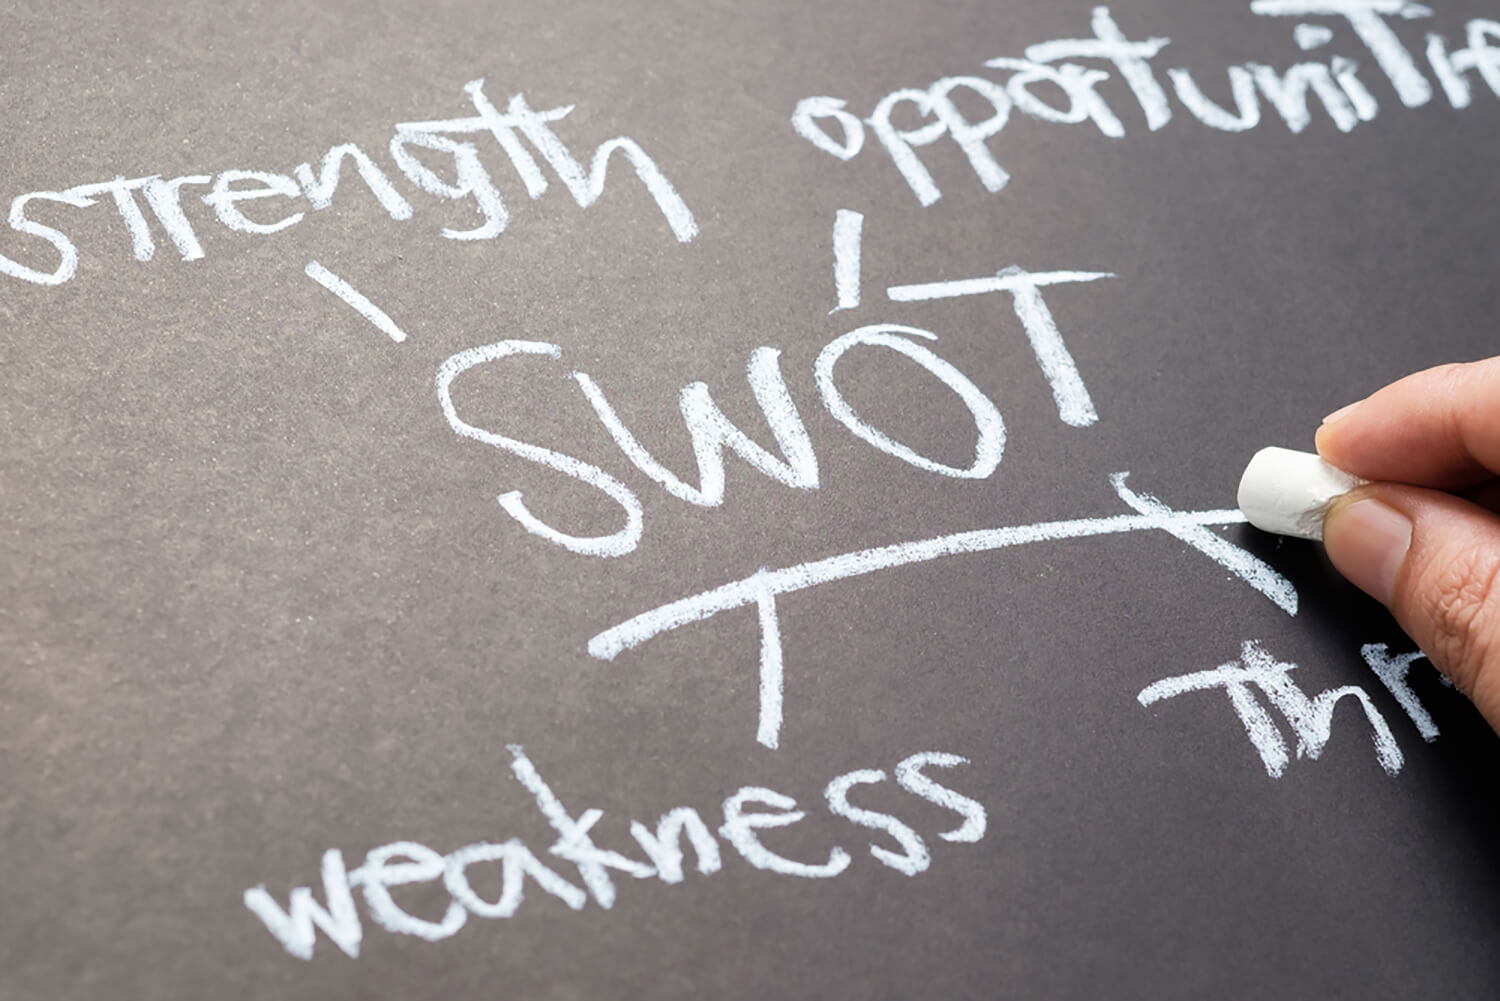 strength
opportunitie
SWOT
weakness
Thr